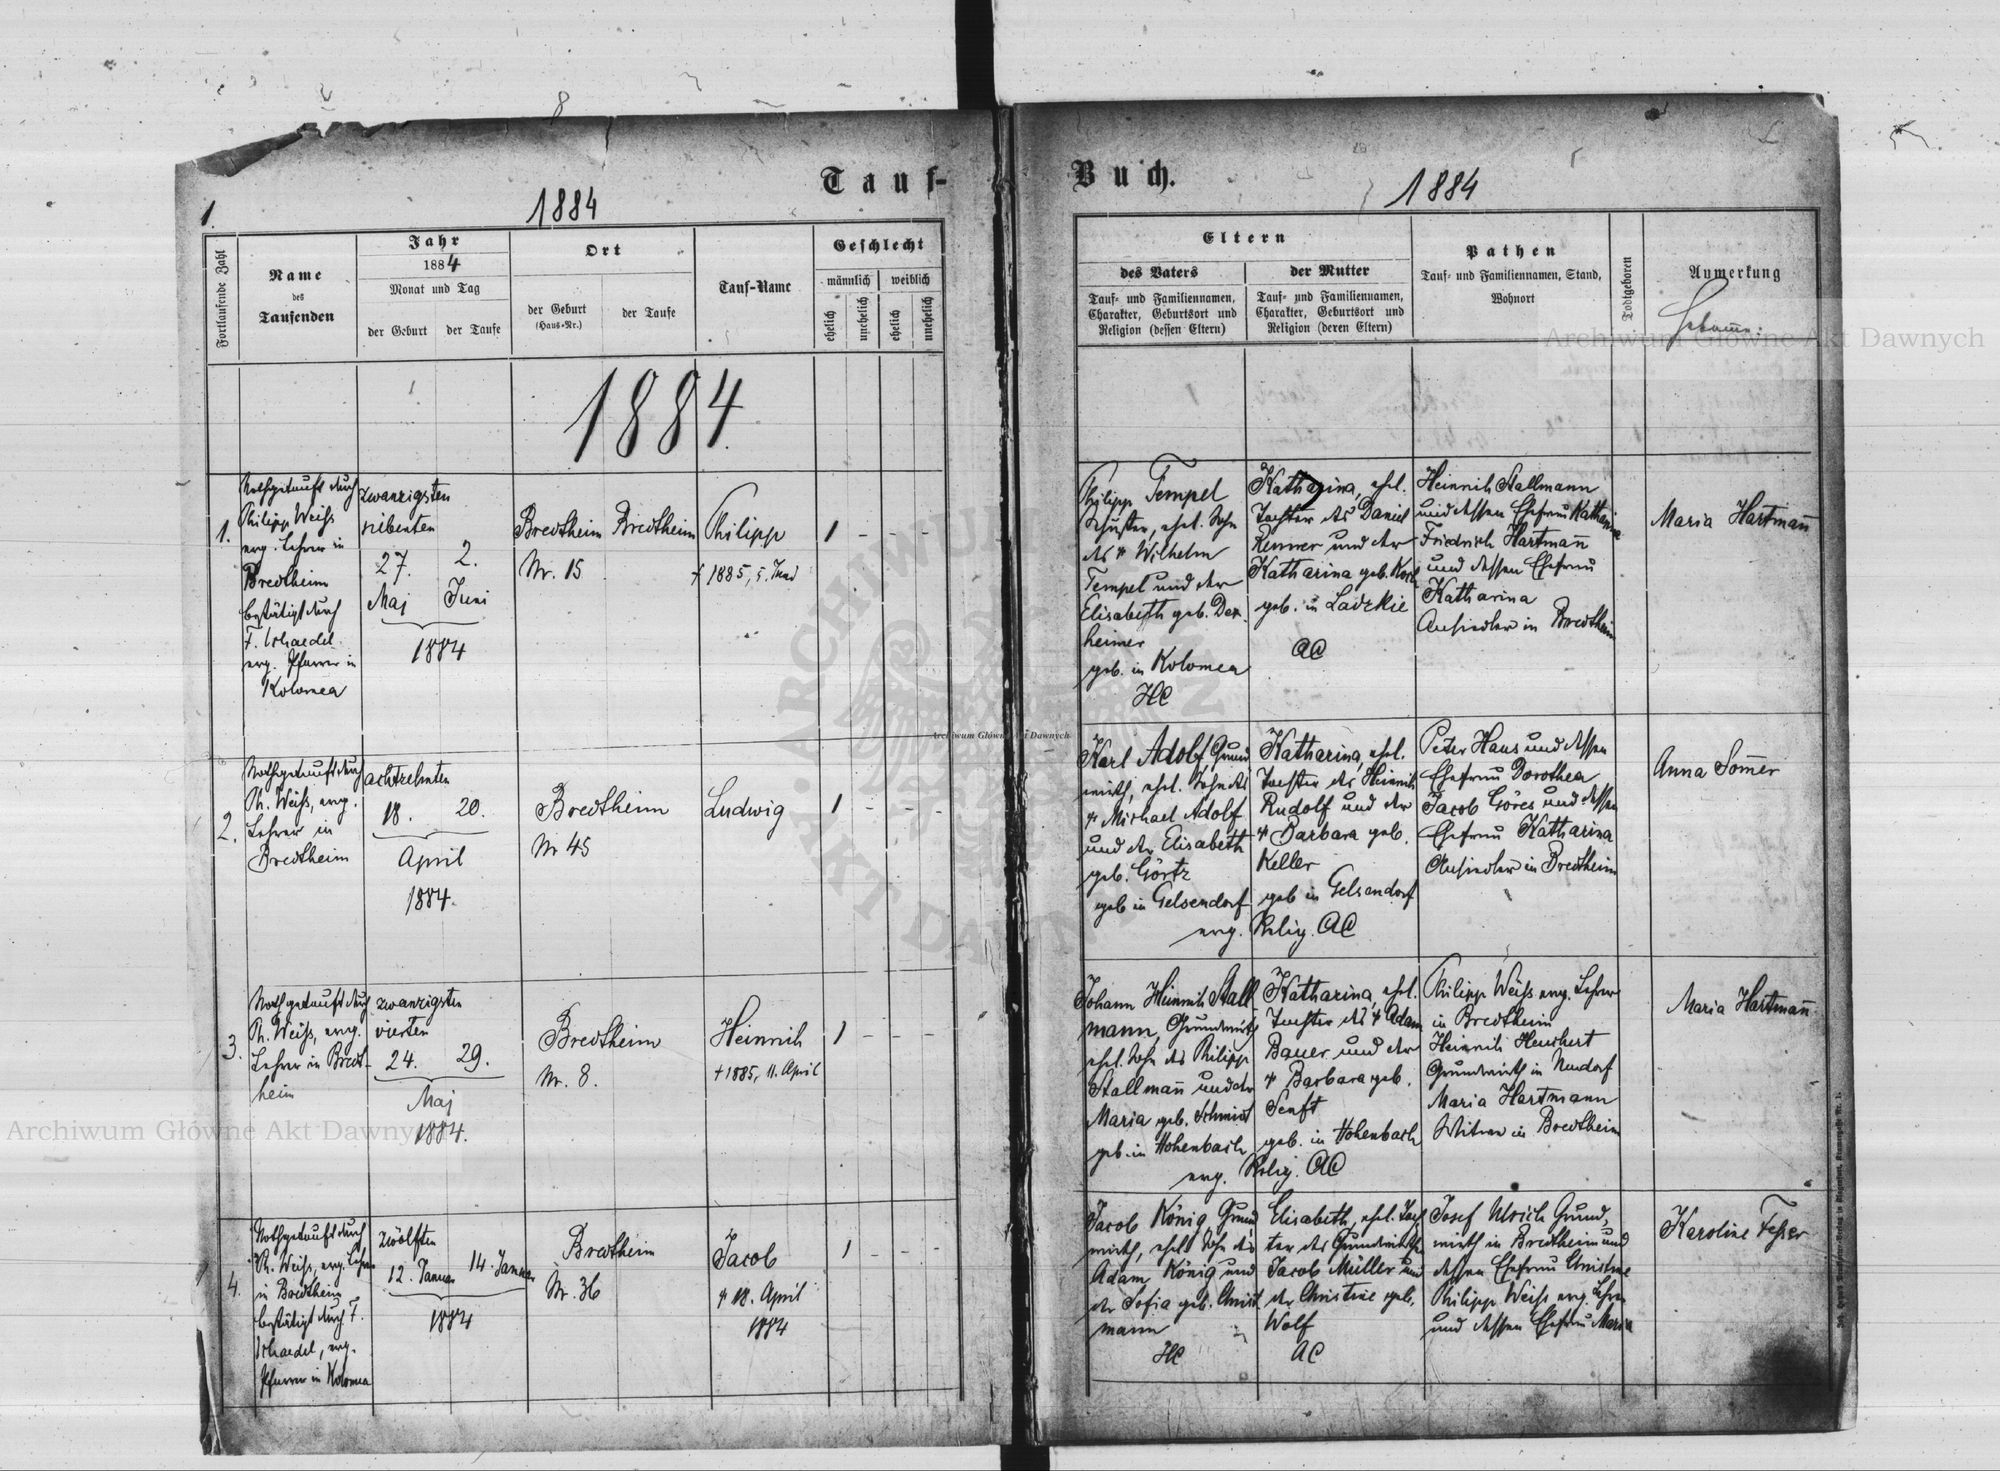 Tauf-
Buch.
1.
1884
1884
Fortlaufende Zahl
Name
des
Taufenden
Jahr
1884
Monat und Tag
der Geburt
der Taufe
Ort
der Geburt
(Haus-Nr.)
der Taufe
Tauf-Name
Geschlecht
männlich
weiblich
ehelich
unehelich
ehelich
unehelich
Eltern
des Vaters
Tauf- und Familiennamen,
Charakter, Geburtsort und
Religion (dessen Eltern)
der Mutter
Tauf- und Familiennamen,
Charakter, Geburtsort und
Religion (deren Eltern)
Pathen
Tauf- und Familiennamen, Stand,
Wohnort
Todtgeboren
Anmerkung
1884
1.
Nothgetauft durch
Philipp Weiss
evg. Lehrer in
Bredtheim
bestätigt durch
evg. Pfarrer in
Kolomea
zwanzigsten
siebenten
27.
2.
Maj
Juni
1884
Bredtheim
Nr. 15
Bredtheim
Philipp
† 1885, 5.
1 - - -
Philipp Tempel
ehel. Sohn
des † Wilhelm
Tempel und der
Elisabeth geb. Der-
heimer
geb. in Kolomea
HC
Katharina, ehel.
Tochter des Daniel
Renner und der
Katharina geb. Koch
geb. in Ladzkie
AC
Heinrich Stallmann
und dessen Ehefrau Katharina
Friedrich Hartmañ
und dessen Ehefrau
Katharina
Ansiedler in Bredtheim
Maria Hartmañ
2.
Nothgetauft durch
Ph. Weiss, evg.
Lehrer in
Bredtheim
achtzehnten
18.
20.
April
1884.
Bredtheim
Nr 45
Ludwig
1 - - -
Karl Adolf, Grund
wirth, ehel. Sohn des
† Michael Adolf
und der Elisabeth
geb. Görtz
geb in Gelsendorf
Katharina, ehel.
Tochter des Heinrich
Rudolf und der
† Barbara geb.
Keller
geb in Gelsendorf
evg. Relig. AC
Peter Haus und dessen
Ehefrau Dorothea
Jacob Göres und dessen
Ehefrau Katharina
Ansiedler in Bredtheim
Anna Som̄er
3.
Nothgetauft durch
Ph. Weiss, evg.
Lehrer in Bredt-
heim
zwanzigsten
vierten
24.
29.
Maj
1884.
Bredtheim
Nr. 8.
Heinrich
† 1885, 11. April
1 - - -
Johann Heinrich Stall
mann, Grundwirth
ehel. Sohn des Philipp
Stallmañ und der
Maria geb. Schmidt
geb. in Hohenbach
Katharina, ehel.
Tochter des † Adam
Bauer und der
† Barbara geb.
Senft
geb. in Hohenbach
evg. Relig. AC
Philipp Weiss evg. Lehrer
in Bredtheim
Heinrich
Grundwirth in Neudorf
Maria Hartmann
Witwe in Bredtheim
Maria Hartmañ
4.
Nothgetauft durch
Ph. Weiss, evg. Lehrer
in Bredtheim
bestätigt durch F.
evg.
Pfarrer in Kolomea
zwölften
12. Januar
14. Januar
1884
Bredtheim
Nr. 36
Jacob
† 18. April
1884
1 - - -
Jacob König, Grund
wirth, ehel. Sohn des
Adam König und
der Sofia geb. Christ
mann
HC
Elisabeth, ehel. Toch
ter des Grundwirths
Jacob Müller und
der Christine geb.
Wolf
AC
Josef Ulrich Grund,
wirth in Bredtheim und
dessen Ehefrau Christine
Philipp Weiss evg. Lehrer
und dessen Ehefrau Maria
Karoline
Archiwum Główne Akt Dawnych
Archiwum Główne Akt Dawnych
Archiwum Główne Akt Dawnych